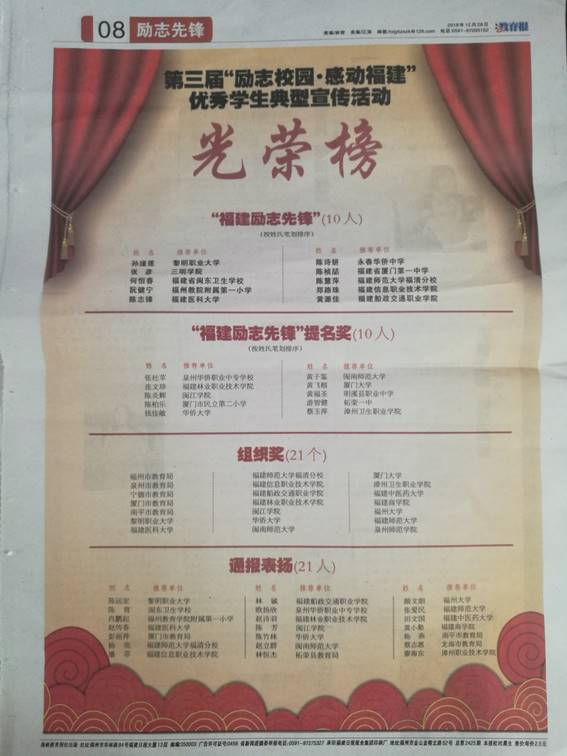 08 励志先锋
教育报
第三届“励志校园·感动福建”
优秀学生典型宣传活动
光荣榜
“福建励志先锋”(10人)
(按姓氏笔划排序)
姓 名 推荐单位 姓 名 推荐单位
黎明职业大学 陈诗妍 永春华侨中学
张 彦 三明学院 陈桢喆 福建省厦门第一中学
何恒春 福建省闽东卫生学校 陈慧萍 福建师范大学福清分校
阮健宁 福州教院附属第一小学 郑路珠 福建信息职业技术学院
陈志锋 福建医科大学 黄源佳 福建船政交通职业学院
“福建励志先锋”提名奖(10人)
(按姓氏笔划排序)
姓 名 推荐单位 姓 名 推荐单位
张杜苹 泉州华侨职业中专学校 黄子鉴 闽南师范大学
张文珍 福建林业职业技术学院 黄飞榕 厦门大学
陈炎辉 闽江学院 黄福圣 明溪县职业中学
陈柏乐 厦门市民立第二小学 游智健 柘荣一中
钱佳敏 华侨大学 蔡玉萍 漳州卫生职业学院
组织奖(21个)
福州市教育局 福建师范大学福清分校 厦门大学
泉州市教育局 福建信息职业技术学院 漳州卫生职业学院
宁德市教育局 福建船政交通职业学院 福建中医药大学
厦门市教育局 福建林业职业技术学院 福建商学院
南平市教育局 闽江学院 福州大学
黎明职业大学 华侨大学 福建师范大学
福建医科大学 闽南师范大学 泉州师范学院
通报表扬(21人)
姓 名 推荐单位 姓 名 推荐单位 姓 名 推荐单位
陈远宏 黎明职业大学 林 铖 福建船政交通职业学院 颜文锻 福州大学
陈 育 闽东卫生学校 欧扬欣 泉州华侨职业中专学校 张爱民 福建师范大学
肖鹏起 福州教育学院附属第一小学 赵诗羽 福建林业职业技术学院 田文国 福建中医药大学
赵传春 福建医科大学 陈 芳 闽江学院 黄小勤 福建商学院
彭丽萍 厦门市教育局 陈竹林 华侨大学 杨 燕 南平市教育局
杨 亮 福建师范大学福清分校 赵立群 闽南师范大学 蔡志惠 龙海市教育局
潘 菲 福建信息职业技术学院 林恒杰 柘荣县教育局 廖海东 漳州职业技术学院